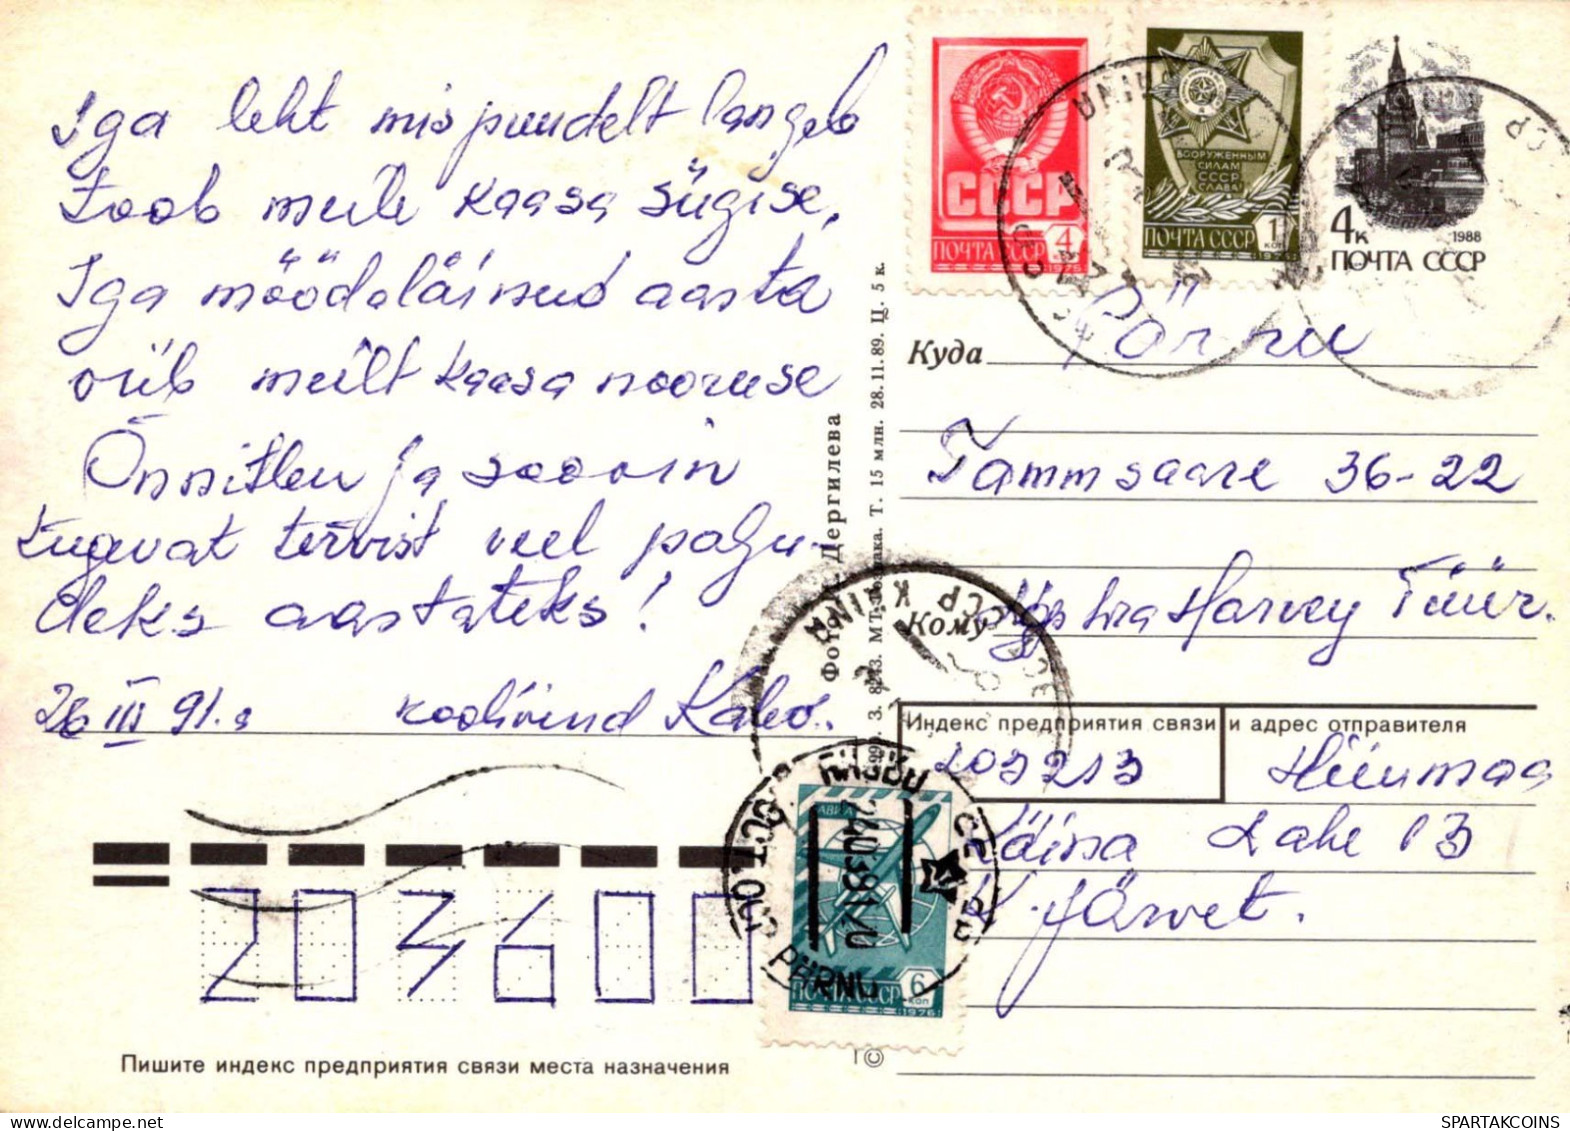 Iga leht mis puudelt langeb
toob meile kaasa sügise,
Iga möödaläinud aasta
viib meilt kaasa nooruse
Õnnitleu ja soovin
tugevat tervist veel palju-
deks aastateks!
26 III 91.a koolivend Kalev.
Фото Дергилева
З. 8243. МТ Гознака. Т. 15 млн. 28.11.89. Ц. 5 к.
СССР
ПОЧТА СССР 4
1975
ВООРУЖЕННЫМ
СИЛАМ
СССР
СЛАВА!
ПОЧТА СССР 1 КОП
4к 1988
ПОЧТА СССР
Куда Pärnu
Tammsaare 36-22
Кому Harvey Tüür.
Индекс предприятия связи и адрес отправителя
203213 Hiiumaa
Käina Lahe 13
K. Järvet.
KÄINA
АВИА
ПОЧТА СССР 6 КОП
1976
PÄRNU
203600
Пишите индекс предприятия связи места назначения
©
SPARTAKCOINS.COM